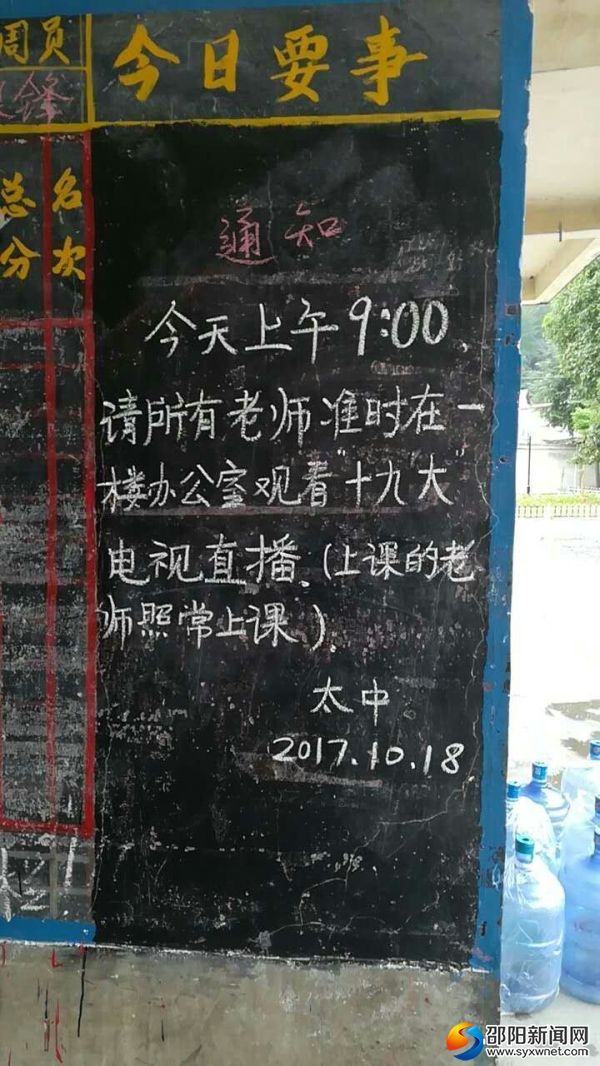 周员
锋
总名
分次
今日要事
通知
今天上午9:00,
请所有老师准时在一
楼办公室观看"十九"大"
电视直播.(上课的老
师照常上课).
太中
2017.10.18
邵阳新闻网
www.syxwnet.com